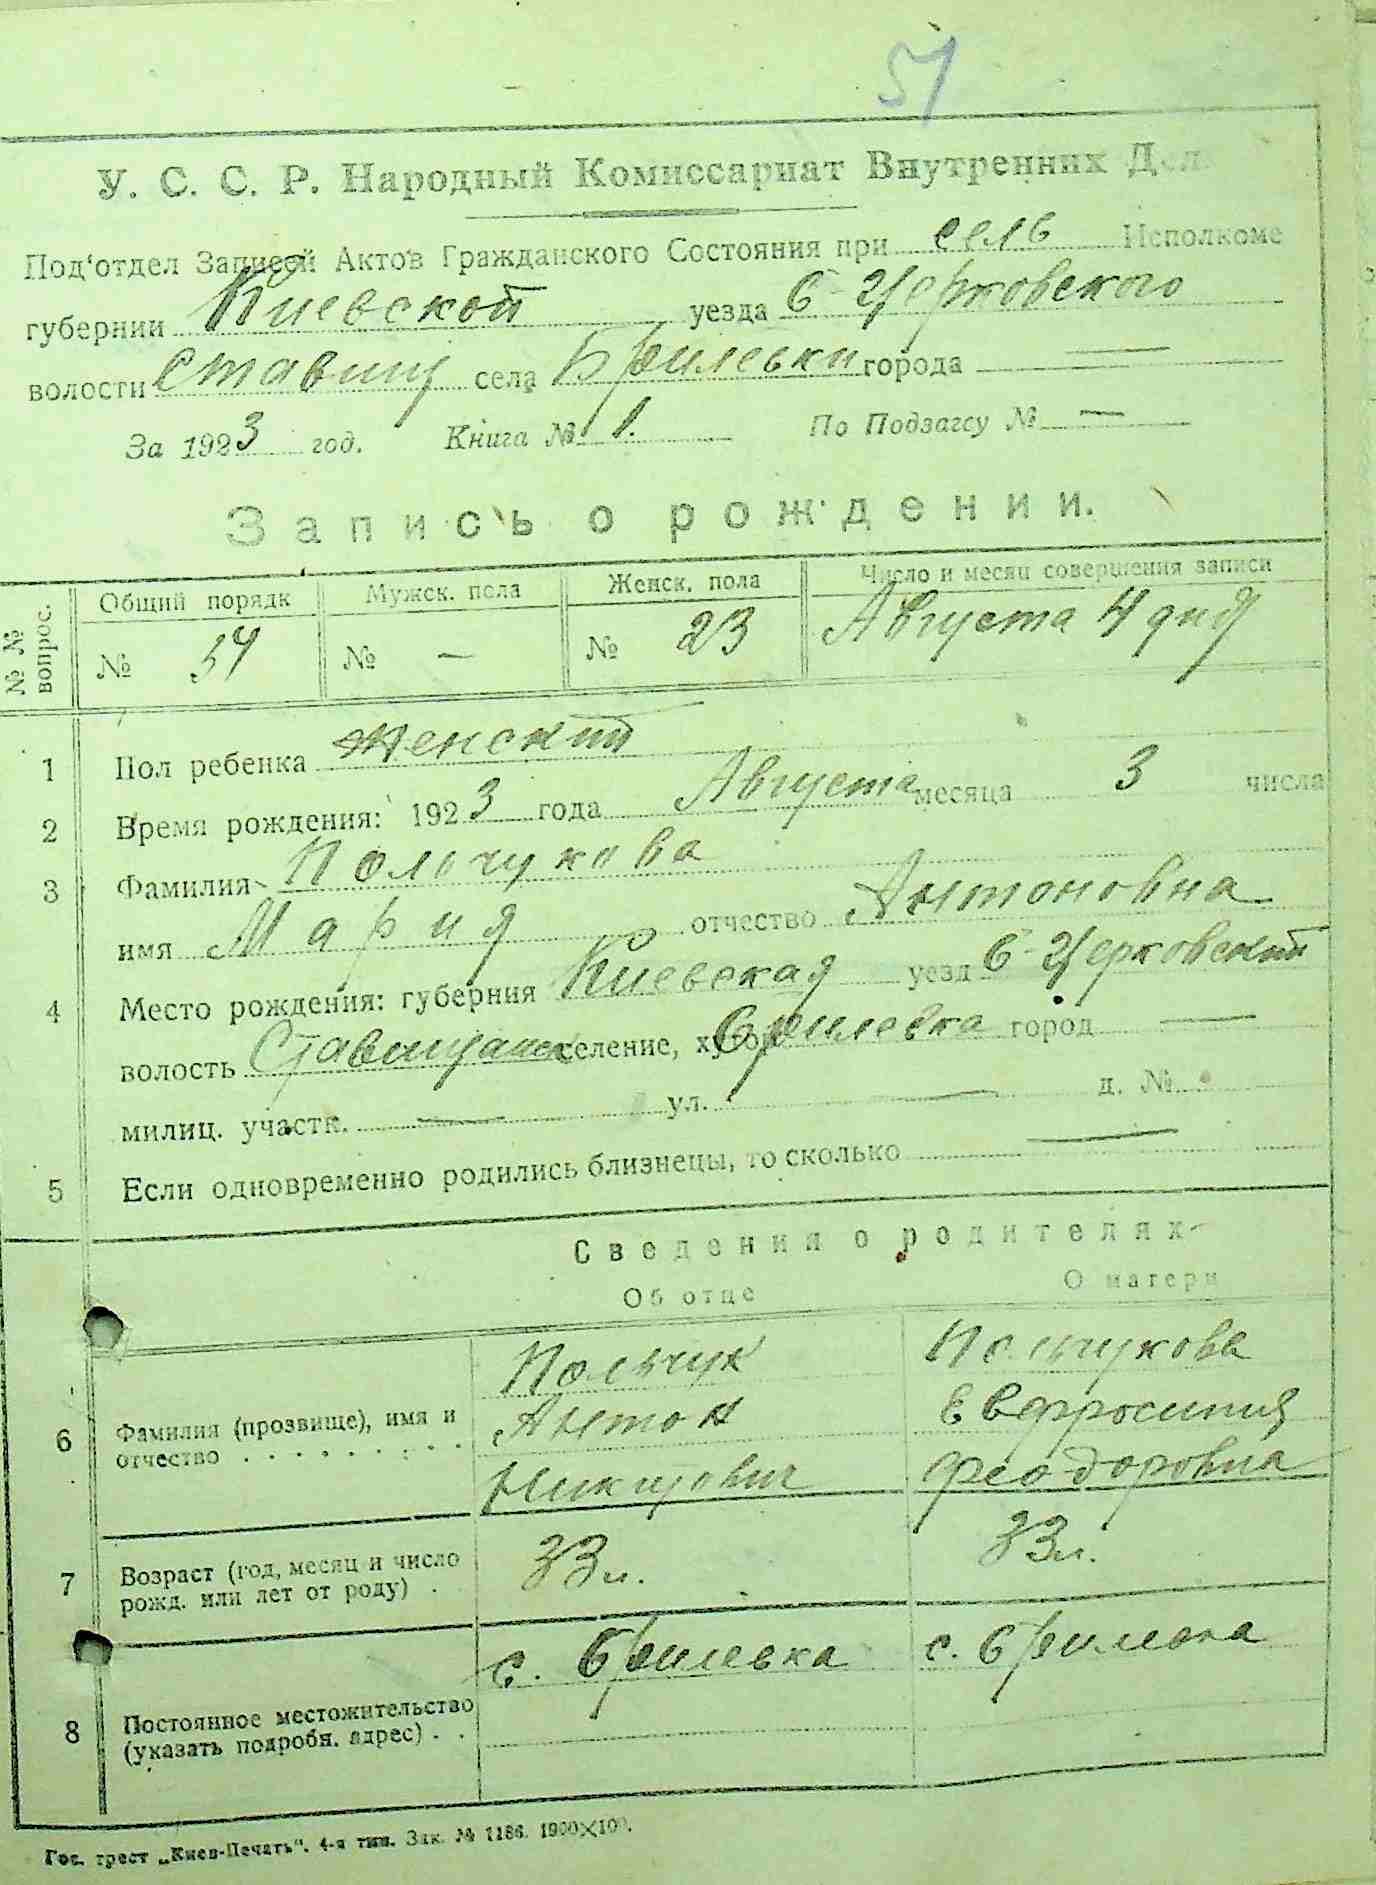 51
У. С. С. Р. Народный Комиссариат Внутренних Дел
Под'отдел Записей Актов Гражданского Состояния при сель Исполкоме
губернии Киевской уезда Б-Церковского
волости Ставищ села Брилевки города —
За 1923 год. Книга № 1. По Подзагсу № —
Запись о рождении.
№ № вопрос. Общий порядк Мужск. пола Женск. пола Число и месяц совершения записи
№ 51 № — № 23 Августа 4 дня
1 Пол ребенка женский
2 Время рождения: 1923 года Августа месяца 3 числа
3 Фамилия Польчукова
имя Мария отчество Антоновна
4 Место рождения: губерния Киевская уезд Б-Церковский
волость Ставищанск селение, хутор Брилевка город —
милиц. участк. — ул. — д. №
5 Если одновременно родились близнецы, то сколько —
Сведения о родителях
Об отце О матери
6 Фамилия (прозвище), имя и отчество . . . . . . . .
Польчук Польчукова
Антон Евфросиния
Никитович Феодоровна
7 Возраст (год, месяц и число рожд. или лет от роду) .
33 л. 33 л.
8 Постоянное местожительство (указать подробн. адрес) . .
с. Брилевка с. Брилевка
Гос. трест „Киев-Печать". 4-я тип. Зак. № 1186. 1900×100.